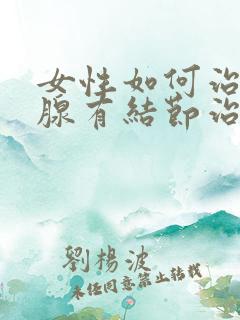 女性如何治
腺有結節治
劉楊波
未经同意禁止转载